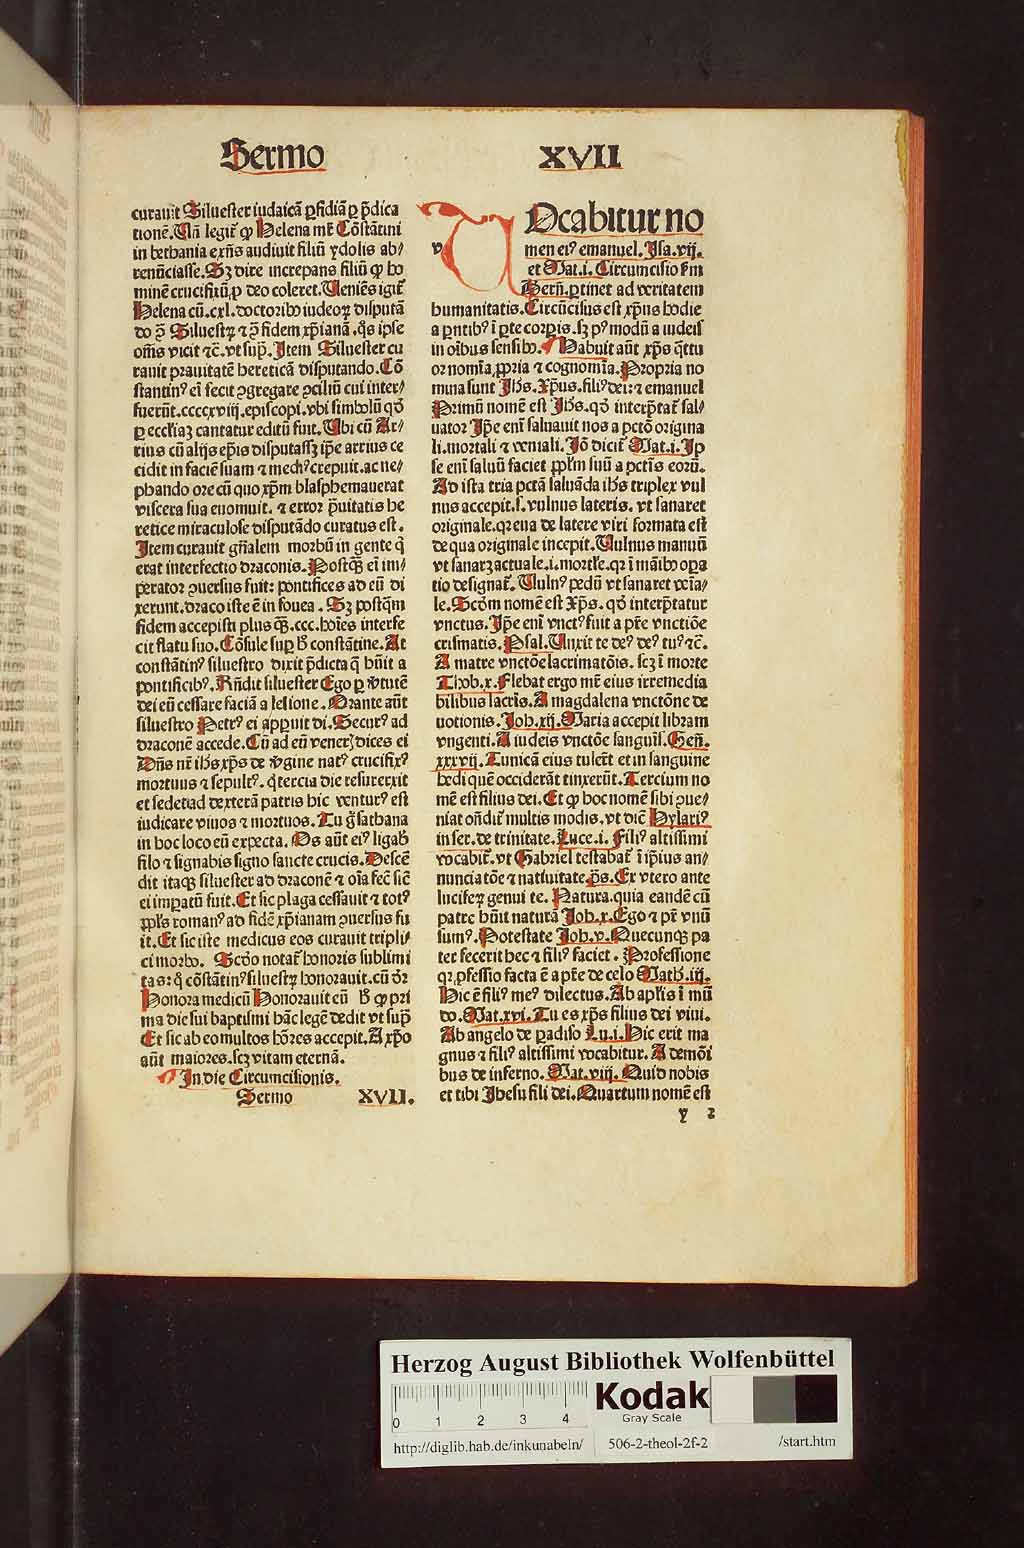 Sermo XVII
curauit Siluester iudaicã ꝑfidiã ꝑ p̃dica
tionẽ. Nã legit̃ ꝙ Helena mr̃ Cõstãtini
in bethania exñs audiuit filiũ ydolis ab⸗
renũciasse. Sꝫ dire increpans filiũ ꝙ ho
minẽ crucifixũ ꝓ deo coleret. Ueniẽs igit̃
Helena cũ .cxl. doctoribꝰ iudeoꝝ disputã
do ꝯ̃ Siluestrũ ⁊ ꝯ̃ fidem xp̃ianã. q̃s ipse
om̃s vicit ⁊c̃. vt sup̃. Item Siluester cu
rauit prauitatẽ hereticã disputando. Cõ
stantinꝰ em̃ fecit ꝯgregare ꝯciliũ cui inter⸗
fuerũt .ccccxviij. episcopi. vbi simbolũ qd̃
ꝑ eccl̃iaꝫ cantatur editũ fuit. Ubi cũ Ar⸗
rius cũ alijs ep̃is disputassꝫ ip̃e arrius ce
cidit in faciẽ suam ⁊ mechꝰ crepuit. ac ne⸗
phando ore cũ quo xp̃m blasphemauerat
viscera sua euomuit. ⁊ error p̃uitatis he
retice miraculose disputãdo curatus est.
Item curauit gñalem morbũ in gente q̃
erat interfectio draconis. Postq̃ꝫ em̃ im⸗
perator ꝯuersus fuit: pontifices ad eũ di
xerunt. draco iste ẽ in fouea. Sꝫ postq̃m
fidem accepisti plus q̃ꝫ .ccc. hoĩes interfe
cit flatu suo. Cõsule sup̃ h̃ constãtine. At
constãtinꝰ siluestro dixit p̃dicta q̃ hũit a
pontificibꝰ. Rñdit siluester Ego ꝑ ṽtutẽ
dei eũ cessare faciã a lesione. Orante aũt
siluestro Petrꝰ ei apꝑuit di. Securꝰ ad
draconẽ accede. Cũ ad eũ venerꝫ dices ei
Dñs nr̃ ih̃s xp̃s de ṽgine natꝰ crucifixꝰ
mortuus ⁊ sepultꝰ. q̃ tercia die resurrexit
et sedet ad dexterã patris hic venturꝰ est
iudicare viuos ⁊ mortuos. Tu g̃ sathana
in hoc loco eũ expecta. Os aũt eiꝰ ligab̃
filo ⁊ signabis signo sancte crucis. Descẽ
dit itaqꝫ siluester ad draconẽ ⁊ oĩa fec̃ sic̃
ei imꝑatũ fuit. Et sic plaga cessauit ⁊ totꝰ
ppl̃s romanꝰ ad fidẽ xp̃ianam ꝯuersus fu
it. Et sic iste medicus eos curauit tripli⸗
ci morbo. Scd̃o notat̃ honoris sublimi
tas: q̃ cõstãtinꝰ siluestrũ honorauit. cũ dr̃
Honora medicũ Honorauit eũ h̃ ꝙ pri
ma die sui baptismi hãc legẽ dedit vt sup̃
Et sic ab eo multos hõres accepit. A xp̃o
aũt maiores. scꝫ vitam eternã.
In die Circumcisionis.
Sermo XVII.
v
Ocabitur no
men eiꝰ emanuel. Isa. vij.
et Mat. i. Circumcisio s̃m
Bern̄. ꝑtinet ad veritatem
humanitatis. Circũcisus est xp̃us hodie
a ꝑntibꝰ ĩ ꝑte corꝑis. sꝫ pꝰ modũ a iudeis
in oĩbus sensibꝰ. Habuit aũt xp̃s q̃ttu
or nom̃ia ꝓpria ⁊ cognom̃ia. Propria no
mina sunt Ih̃s. Xp̃us. filiꝰ dei: ⁊ emanuel
Primũ nomẽ est Ih̃s. qd̃ interp̃tat̃ sal⸗
uator Ip̃e em̃ saluauit nos a pctõ origina
li. mortali ⁊ veniali. Iõ dicit̃ Mat. i. Ip
se em̃ saluũ faciet ppl̃m suũ a pctĩs eorũ.
Ad ista tria pctã saluãda ih̃s triplex vul
nus accepit. s. vulnus lateris. vt sanaret
originale. qꝛ eua de latere viri formata est
de qua originale incepit. Uulnus manuũ
vt sanarꝫ actuale .i. mortl̃e. qꝛ ĩ mãibꝰ oꝑa
tio designat̃. Uulnꝰ pedũ vt sanaret veĩa⸗
le. Scd̃m nomẽ est Xp̃s. qd̃ interp̃tatur
vnctus. Ip̃e em̃ vnctꝰ fuit a pr̃e vnctiõe
crismatis. Psal. Unxit te deꝰ deꝰ tuꝰ ⁊c̃.
A matre vnctõe lacrimatõis. scꝫ ĩ morte
Thob. x. Flebat ergo mr̃ eius irremedia
bilibus lacrĩs. A magdalena vnctõne de
uotionis. Ioh. xij. Maria accepit libram
vngenti. A iudeis vnctõe sanguĩs. Gen̄.
xxxvij. Tunicã eius tuler̃t et in sanguine
hedi quẽ occiderãt tinxerũt. Tercium no
mẽ est filius dei. Et ꝙ hoc nomẽ sibi ꝯue⸗
niat ondit̃ multis modis. vt dic̃ Hylariꝰ
in ser. de trinitate. Luce. i. Filiꝰ altissimi
vocabit̃. vt Gabriel testabat̃ ĩ ip̃ius an⸗
nunciatõe ⁊ natiuitate p̃s. Ex vtero ante
luciferꝫ genui te. Natura. quia eandẽ cũ
patre hũit naturã Ioh. x. Ego ⁊ pr̃ vnũ
sumꝰ. Potestate Ioh. v. Quecunqꝫ pa
ter fecerit hec ⁊ filiꝰ faciet. Professione
qꝛ ꝓfessio facta ẽ a pr̃e de celo Math. iij.
Hic ẽ filiꝰ meꝰ dilectus. Ab apl̃is ĩ mũ
do. Mat. xvi. Tu es xp̃s filius dei viui.
Ab angelo de ꝑadiso Lu. i. Hic erit ma
gnus ⁊ filiꝰ altissimi vocabitur. A demõi
bus de inferno. Mat. viij. Quid nobis
et tibi Ihesu fili dei. Quartum nomẽ est
y 2
Herzog August Bibliothek Wolfenbüttel
0 1 2 3 4
Kodak
Gray Scale
http://diglib.hab.de/inkunabeln/ 506-2-theol-2f-2 /start.htm